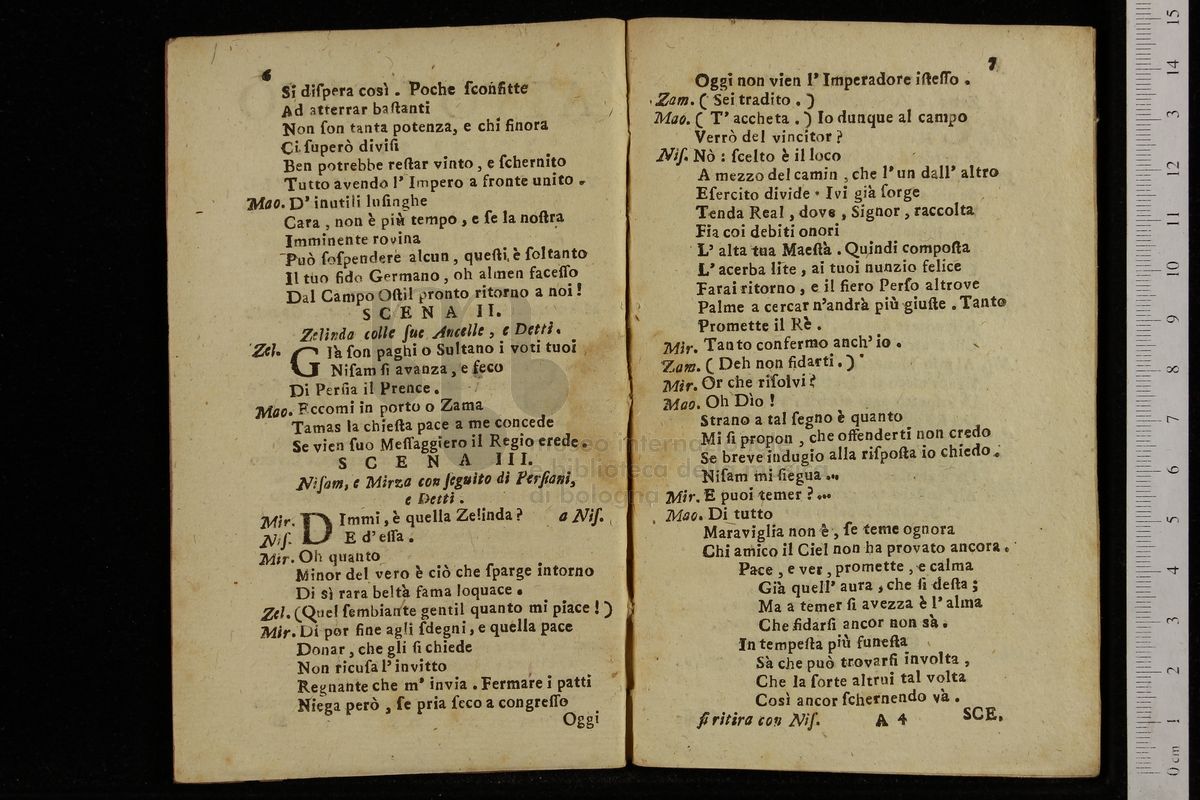 6
Si diſpera così . Poche ſconfitte
Ad atterrar baſtanti
Non ſon tanta potenza, e chi finora
Ci ſuperò diviſi
Ben potrebbe reſtar vinto , e ſchernito
Tutto avendo l' Impero a fronte unito .
Mao. D' inutili luſinghe
Cara , non è più tempo , e ſe la noſtra
Imminente rovina
Può ſoſpendere alcun , queſti è ſoltanto
Il tuo fido Germano , oh almen faceſſo
Dal Campo Oſtil pronto ritorno a noi !
SCENA II.
Zelinda colle ſue Ancelle , e Detti .
Zel. Già ſon paghi o Sultano i voti tuoi
Niſam ſi avanza , e ſeco
Di Perſia il Prence .
Mao. Eccomi in porto o Zama
Tamas la chieſta pace a me concede
Se vien ſuo Meſſaggiero il Regio erede .
SCENA III.
Niſam, e Mirza con ſeguito di Perſiani,
e Detti .
Mir. DImmi , è quella Zelinda ? a Niſ.
Niſ. E d' eſſa .
Mir. Oh quanto
Minor del vero è ciò che ſparge intorno
Di sì rara beltà fama loquace .
Zel. (Quel ſembiante gentil quanto mi piace ! )
Mir. Di por fine agli ſdegni , e quella pace
Donar , che gli ſi chiede
Non ricuſa l' invitto
Regnante che m' invia . Fermare i patti
Niega però , ſe pria ſeco a congreſſo
Oggi
7
Oggi non vien l' Imperadore iſteſſo .
Zam. ( Sei tradito . )
Mao. ( T' accheta . ) Io dunque al campo
Verrò del vincitor ?
Niſ. Nò : ſcelto è il loco
A mezzo del camin , che l' un dall' altro
Eſercito divide . Ivi già ſorge
Tenda Real , dove , Signor , raccolta
Fia coi debiti onori
L' alta tua Maeſtà . Quindi compoſta
L' acerba lite , ai tuoi nunzio felice
Farai ritorno , e il fiero Perſo altrove
Palme a cercar n'andrà più giuſte . Tanto
Promette il Rè .
Mir. Tanto confermo anch' io .
Zam. ( Deh non fidarti . )
Mir. Or che riſolvi ?
Mao. Oh Dìo !
Strano a tal ſegno è quanto
Mi ſi propon , che offenderti non credo
Se breve indugio alla riſpoſta io chiedo .
Niſam mi ſiegua ...
Mir. E puoi temer ? ...
Mao. Di tutto
Maraviglia non è , ſe teme ognora
Chi amico il Ciel non ha provato ancora .
Pace , e ver , promette , e calma
Già quell' aura , che ſi deſta ;
Ma a temer ſi avezza è l' alma
Che fidarſi ancor non sà .
In tempeſta più funeſta
Sà che può trovarſi involta ,
Che la ſorte altrui tal volta
Così ancor ſchernendo và .
ſi ritira con Niſ. A 4 SCE.
museo internazionale
e biblioteca della musica
di bologna
0 cm 1 2 3 4 5 6 7 8 9 10 11 12 13 14 15